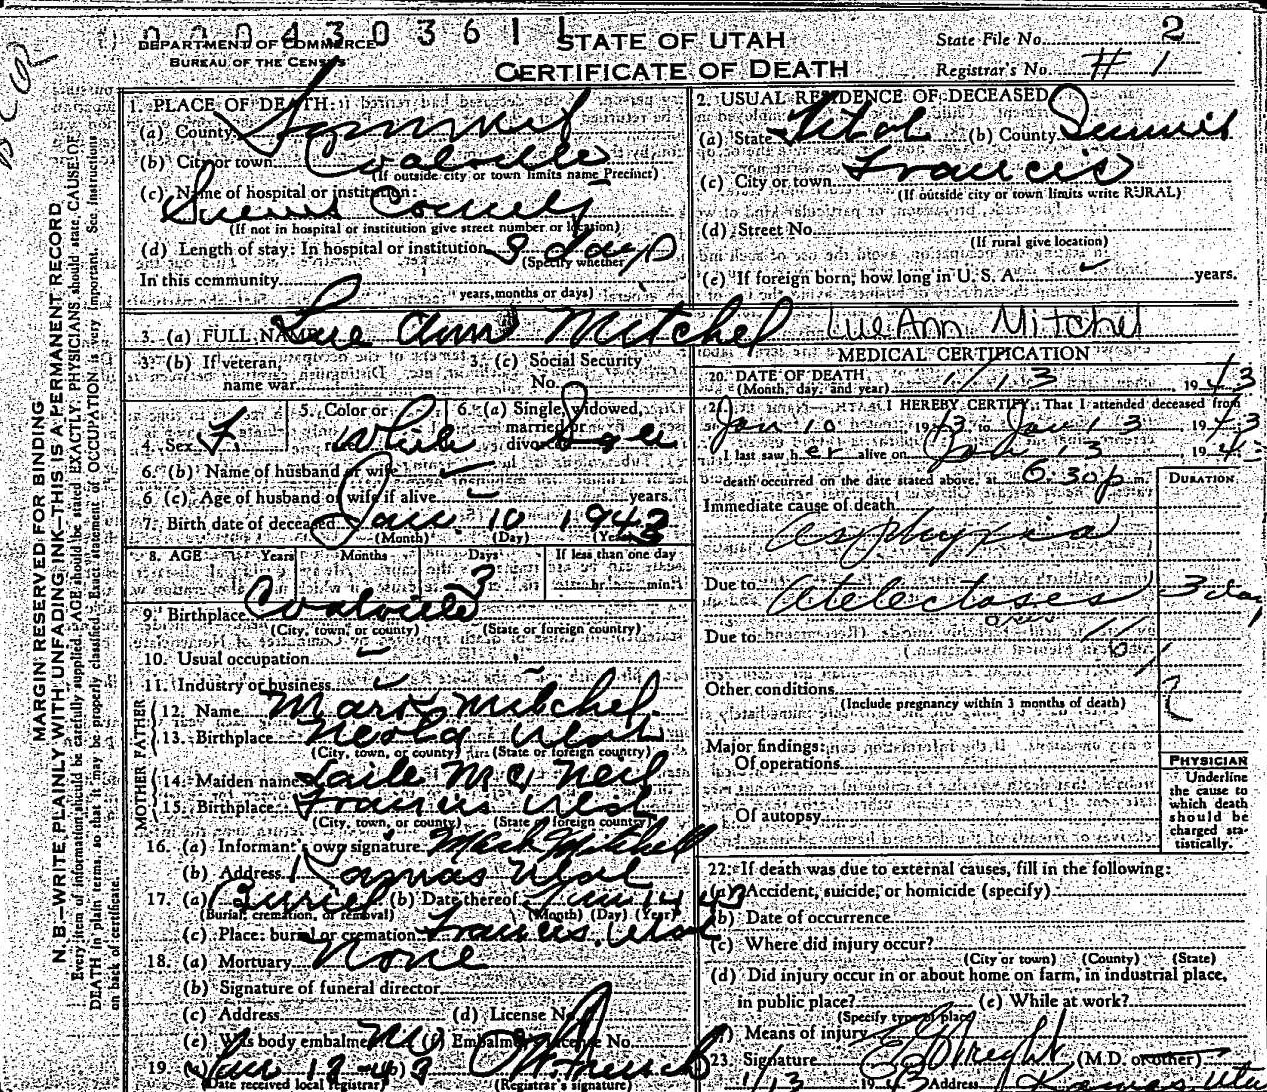 0 0 0 4 3 0 3 6 1 1
DEPARTMENT OF COMMERCE
BUREAU OF THE CENSUS
STATE OF UTAH
CERTIFICATE OF DEATH
State File No. 2
Registrar's No. # 1
MARGIN RESERVED FOR BINDING
N. B.—WRITE PLAINLY WITH UNFADING INK—THIS IS A PERMANENT RECORD
Every item of information should be carefully supplied. AGE should be stated EXACTLY. PHYSICIANS should state CAUSE OF
DEATH in plain terms, so that it may be properly classified. Exact statement of OCCUPATION is very important. See instructions
on back of certificate.
1. PLACE OF DEATH:
(a) County Summit
(b) City or town Coalville
(If outside city or town limits name Precinct)
(c) Name of hospital or institution:
County
(If not in hospital or institution give street number or location)
(d) Length of stay: In hospital or institution 3 days
(Specify whether
In this community
years, months or days)
2. USUAL RESIDENCE OF DECEASED
(a) State Utah (b) County Summit
(c) City or town Francis
(If outside city or town limits write RURAL)
(d) Street No.
(If rural give location)
(e) If foreign born, how long in U. S. A. years.
3. (a) FULL NAME Lue Ann Mitchel LueAnn Mitchel
3. (b) If veteran, name war
3. (c) Social Security No.
4. Sex F
5. Color or White
6. (a) Single, widowed, married or
6. (b) Name of husband or wife
6 (c) Age of husband or wife if alive years.
7. Birth date of deceased Jan. 10 1943
(Month) (Day) (Year)
8. AGE Years Months Days 3 If less than one day
hr. min.
9. Birthplace Coalville
(City, town, or county) (State or foreign country)
10. Usual occupation
11. Industry or business
FATHER
12. Name Mark Mitchel
13. Birthplace Neola Utah
(City, town, or county) (State or foreign country)
MOTHER
14. Maiden name Laile Mc Neil
15. Birthplace Francis Utah
(City, town, or county) (State or foreign country)
16. (a) Informant's own signature Mark Mitchell
(b) Address Kamas Utah
17. (a) Buriel (b) Date thereof Jan 14 43
(Burial, cremation, or removal) (Month) (Day) (Year)
(c) Place: burial or cremation Francis, Utah
18. (a) Mortuary None
(b) Signature of funeral director
(c) Address (d) License No.
(e) Was body embalmed No (f) Embalmer's License No.
19. (a) Jan (b)
(Date received local registrar) (Registrar's signature)
MEDICAL CERTIFICATION
20. DATE OF DEATH
(Month, day, and year) 1/13, 1943
21. I HEREBY CERTIFY: That I attended deceased from
Jan 10 1943, to Jan 13 1943
I last saw her alive on Jan 13 194
death occurred on the date stated above, at 6:30 p. m.
DURATION
Immediate cause of death
asphyxia
Due to Atelectases 3 day
Due to
Other conditions
(Include pregnancy within 3 months of death)
Major findings:
Of operations
Of autopsy
PHYSICIAN
Underline
the cause to
which death
should be
charged sta-
tistically.
22. If death was due to external causes, fill in the following:
(a) Accident, suicide, or homicide (specify)
(b) Date of occurrence
(c) Where did injury occur?
(City or town) (County) (State)
(d) Did injury occur in or about home on farm, in industrial place,
in public place? (e) While at work?
(Specify type of place)
(f) Means of injury
23. Signature (M.D. or other)
1/13 1943 Address